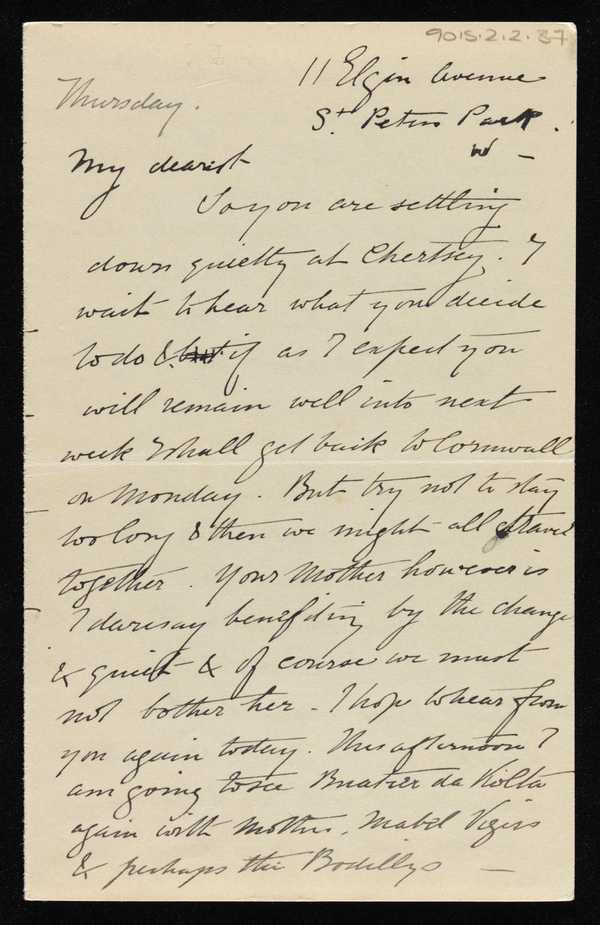 9015.2.2.37
11 Elgin Avenue
Thursday.
St Peters Park.
W –
My dearest
So you are settling
down quietly at Chertsey. I
wait to hear what you decide
to do & but if as I expect you
will remain well into next
week I shall get back to Cornwall
on Monday. But try not to stay
too long & then we might all travel
together. Your Mother however is
I daresay benefiting by the change
& quiet & of course we must
not bother her – I hope to hear from
you again today. This afternoon I
am going to see Buatier da Kolta
again with Mother, Mabel Vigers
& perhaps the Bodillys –